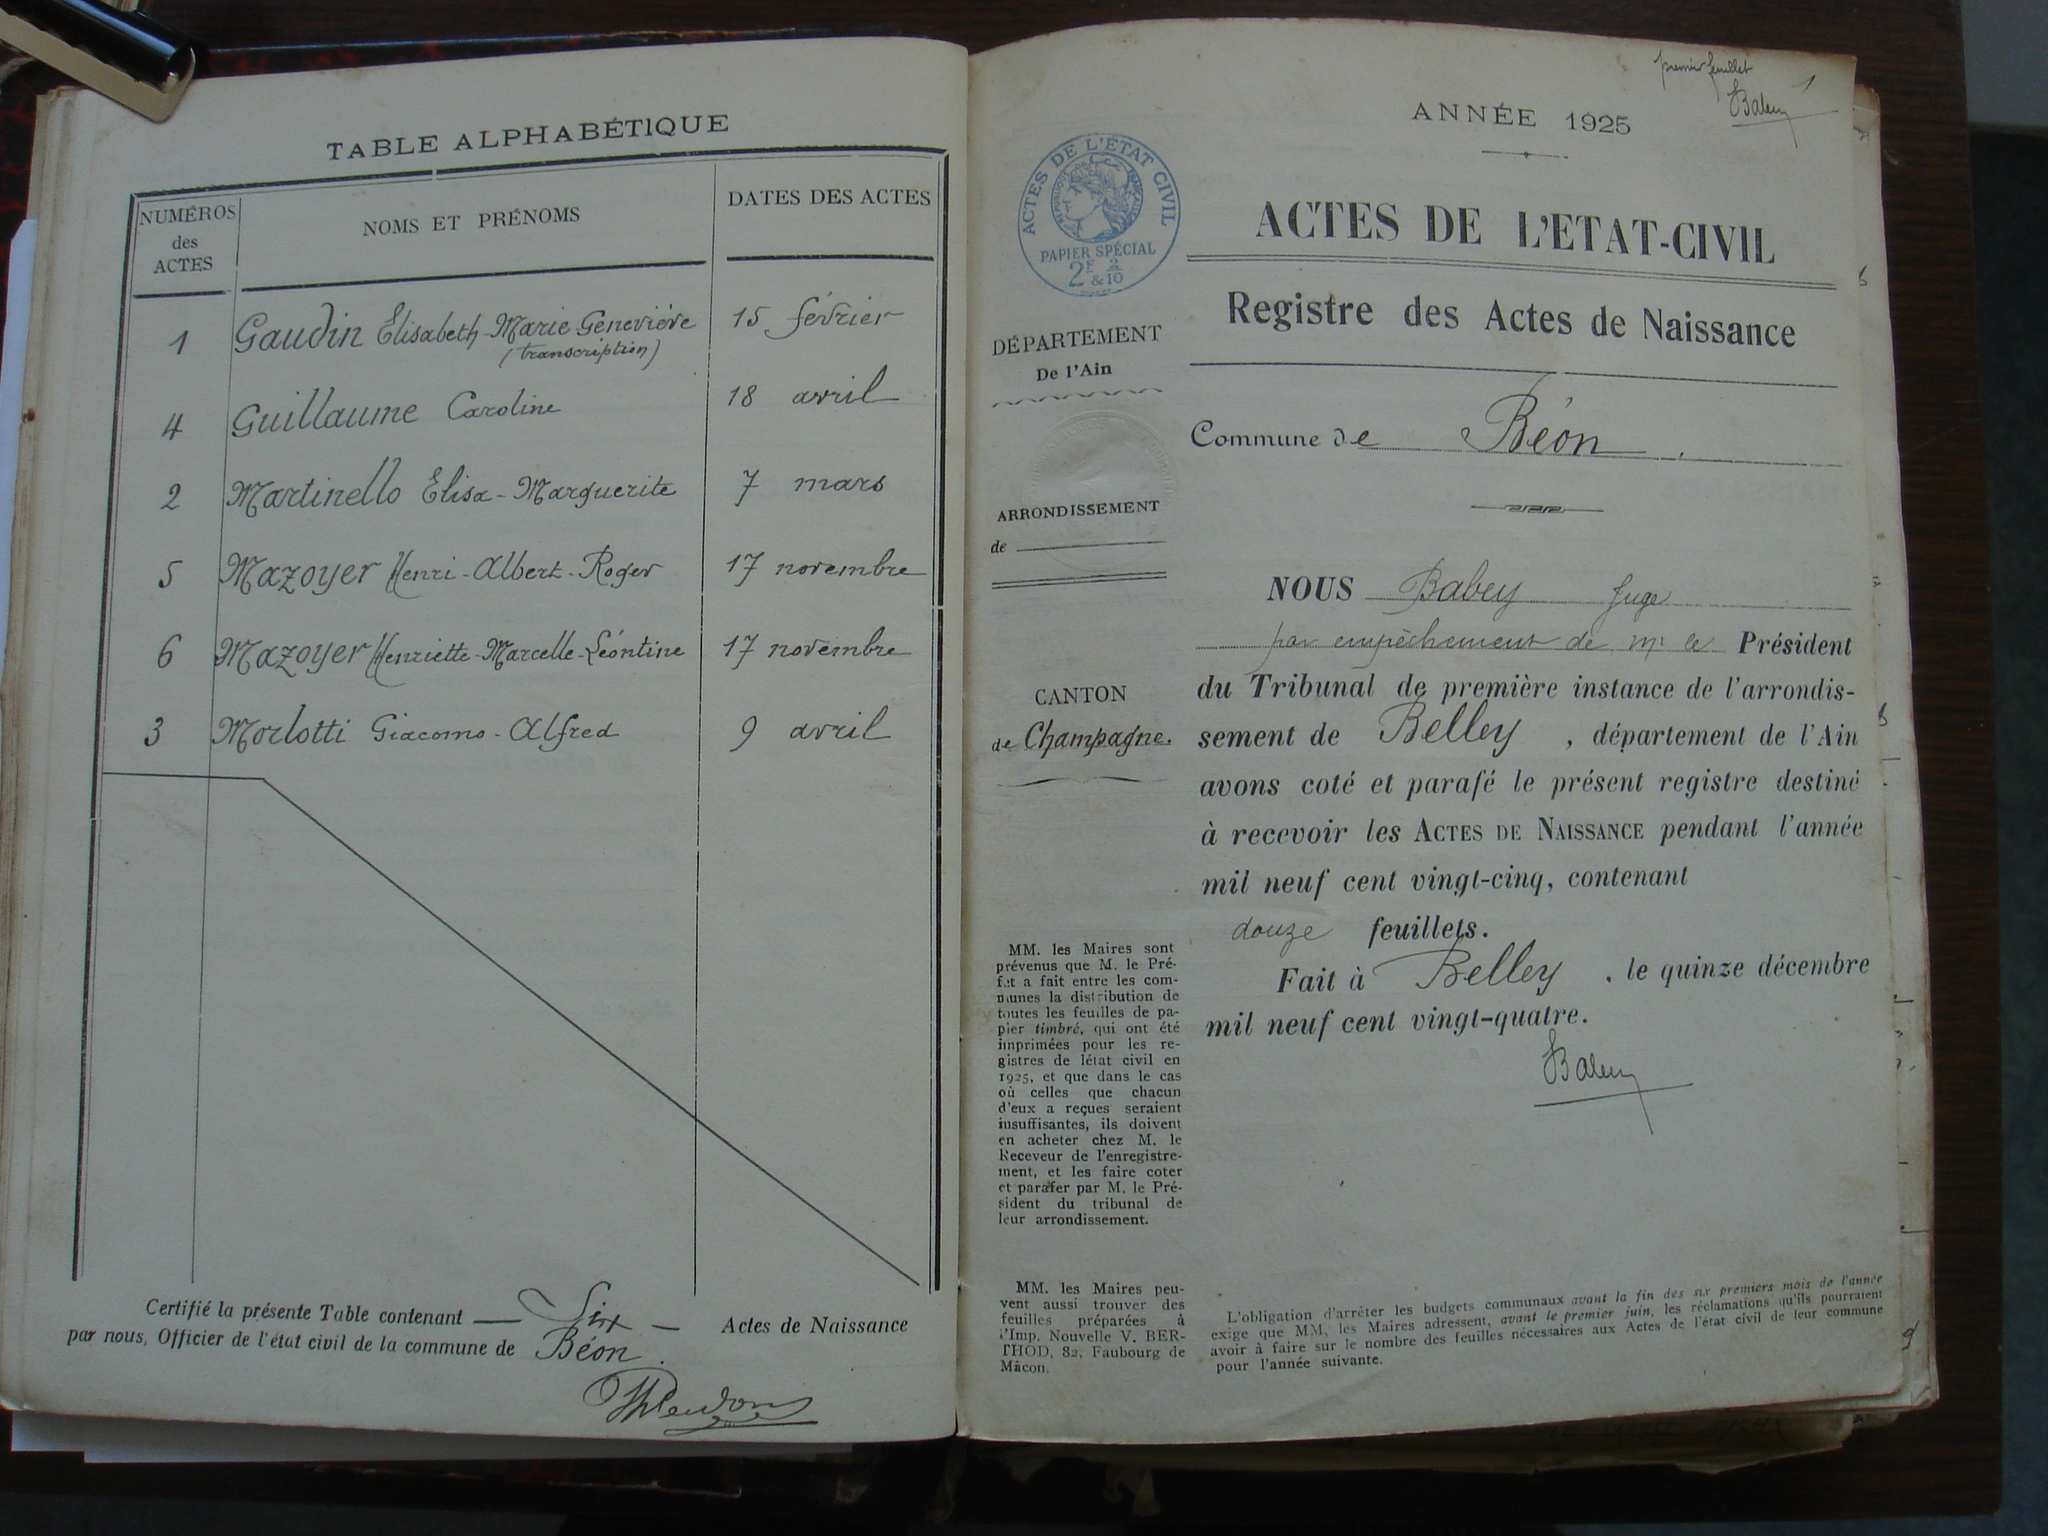 TABLE ALPHABÉTIQUE
NUMÉROS des ACTES
NOMS ET PRÉNOMS
DATES DES ACTES
1 Gaudin Élisabeth-Marie Geneviève 15 février
(transcription)
4 Guillaume Caroline 18 avril
2 Martinello Élisa-Marguerite 7 mars
5 Mazoyer Henri-Albert-Roger 17 novembre
6 Mazoyer Henriette-Marcelle-Léontine 17 novembre
3 Morlotti Giacomo-Alfred 9 avril
Certifié la présente Table contenant Six Actes de Naissance
par nous, Officier de l'état civil de la commune de Béon.
premier feuillet 1
Babey
ANNÉE 1925
ACTES DE L'ÉTAT CIVIL
RÉPUBLIQUE FRANÇAISE
PAPIER SPÉCIAL
2F & 2/10
ACTES DE L'ETAT-CIVIL
Registre des Actes de Naissance
DÉPARTEMENT
De l'Ain
Commune de Béon.
ARRONDISSEMENT
de
CANTON
de Champagne.
NOUS Babey Juge
par empêchement de Mr le Président
du Tribunal de première instance de l'arrondis-
sement de Belley, département de l'Ain
avons coté et parafé le présent registre destiné
à recevoir les ACTES DE NAISSANCE pendant l'année
mil neuf cent vingt-cinq, contenant
douze feuillets.
Fait à Belley, le quinze décembre
mil neuf cent vingt-quatre.
Babey
MM. les Maires sont
prévenus que M. le Pré-
fet a fait entre les com-
munes la distribution de
toutes les feuilles de pa-
pier timbré, qui ont été
imprimées pour les re-
gistres de létat civil en
1925, et que dans le cas
où celles que chacun
d'eux a reçues seraient
insuffisantes, ils doivent
en acheter chez M. le
Receveur de l'enregistre-
ment, et les faire coter
et parafer par M. le Pré-
sident du tribunal de
leur arrondissement.
MM. les Maires peu-
vent aussi trouver des
feuilles préparées à
l'Imp. Nouvelle V. BER-
THOD, 82, Faubourg de
Mâcon.
L'obligation d'arrêter les budgets communaux avant la fin des six premiers mois de l'année
exige que MM. les Maires adressent, avant le premier juin, les réclamations qu'ils pourraient
avoir à faire sur le nombre des feuilles nécessaires aux Actes de l'état civil de leur commune
pour l'année suivante.